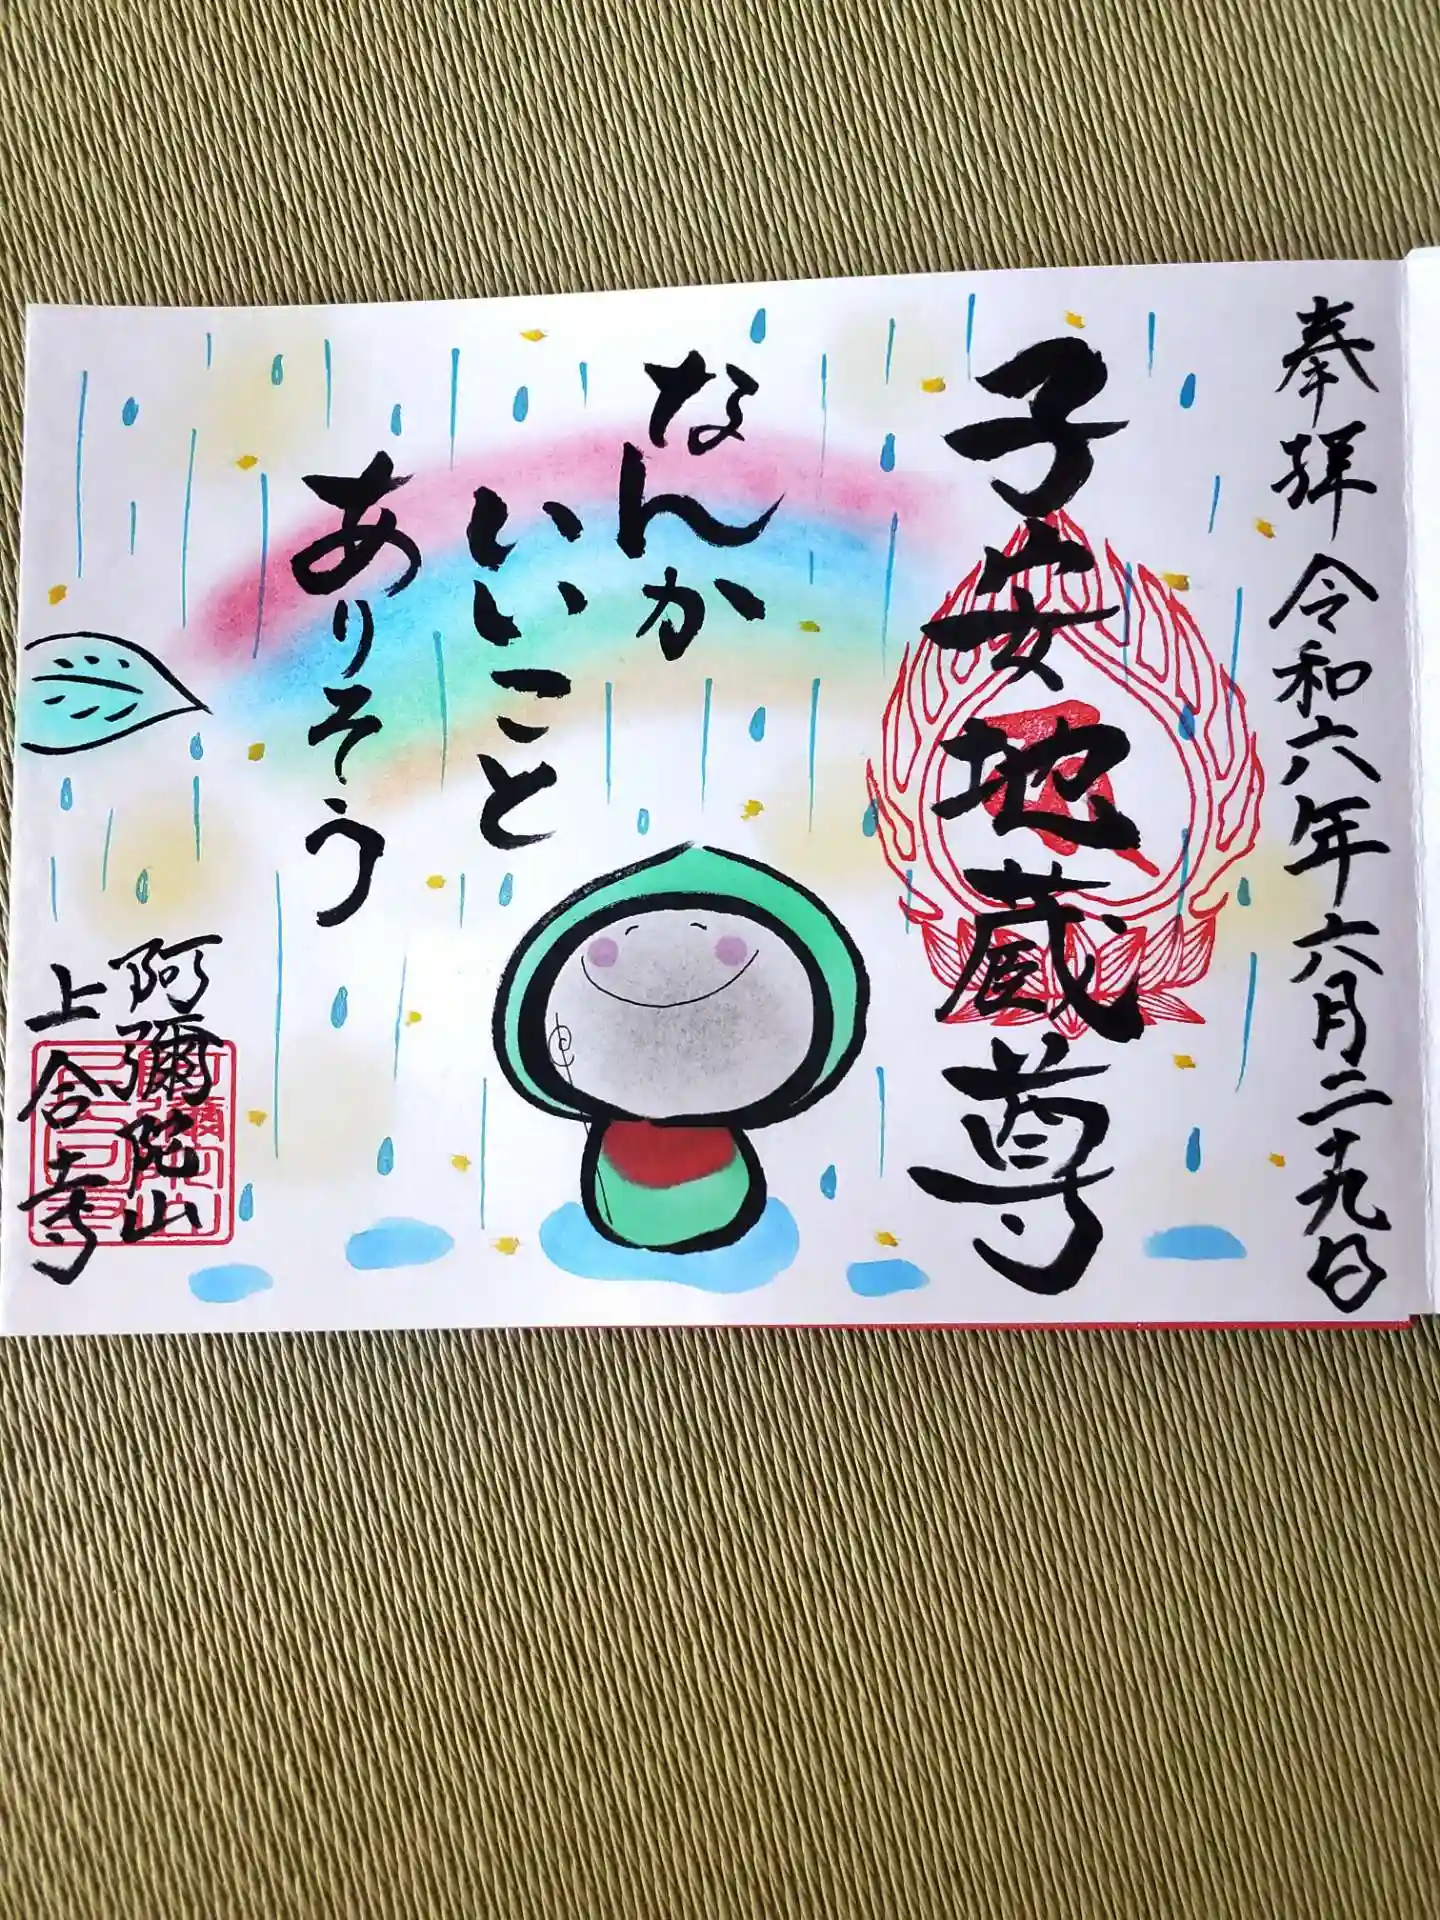 奉拝 令和六年六月二十九日
子安地蔵尊
なんか
いいこと
ありそう
阿彌陀山
上合寺